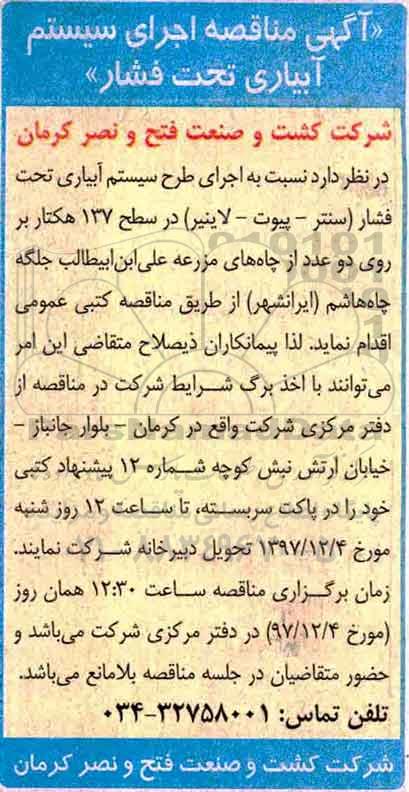 «آگهی مناقصه اجرای سیستم
آبیاری تحت فشار»
شرکت کشت و صنعت فتح و نصر کرمان
در نظر دارد نسبت به اجرای طرح سیستم آبیاری تحت
فشار (سنتر - پیوت - لاینیر) در سطح ۱۳۷ هکتار بر
روی دو عدد از چاه‌های مزرعه علی‌ابن‌ابیطالب جلگه
چاه‌هاشم (ایرانشهر) از طریق مناقصه کتبی عمومی
اقدام نماید. لذا پیمانکاران ذیصلاح متقاضی این امر
می‌توانند با اخذ برگ شرایط شرکت در مناقصه از
دفتر مرکزی شرکت واقع در کرمان - بلوار جانباز -
خیابان ارتش نبش کوچه شماره ۱۲ پیشنهاد کتبی
خود را در پاکت سربسته، تا ساعت ۱۲ روز شنبه
مورخ ۱۳۹۷/۱۲/۴ تحویل دبیرخانه شرکت نمایند.
زمان برگزاری مناقصه ساعت ۱۲:۳۰ همان روز
(مورخ ۹۷/۱۲/۴) در دفتر مرکزی شرکت می‌باشد و
حضور متقاضیان در جلسه مناقصه بلامانع می‌باشد.
تلفن تماس: ۳۲۷۵۸۰۰۱-۰۳۴
شرکت کشت و صنعت فتح و نصر کرمان